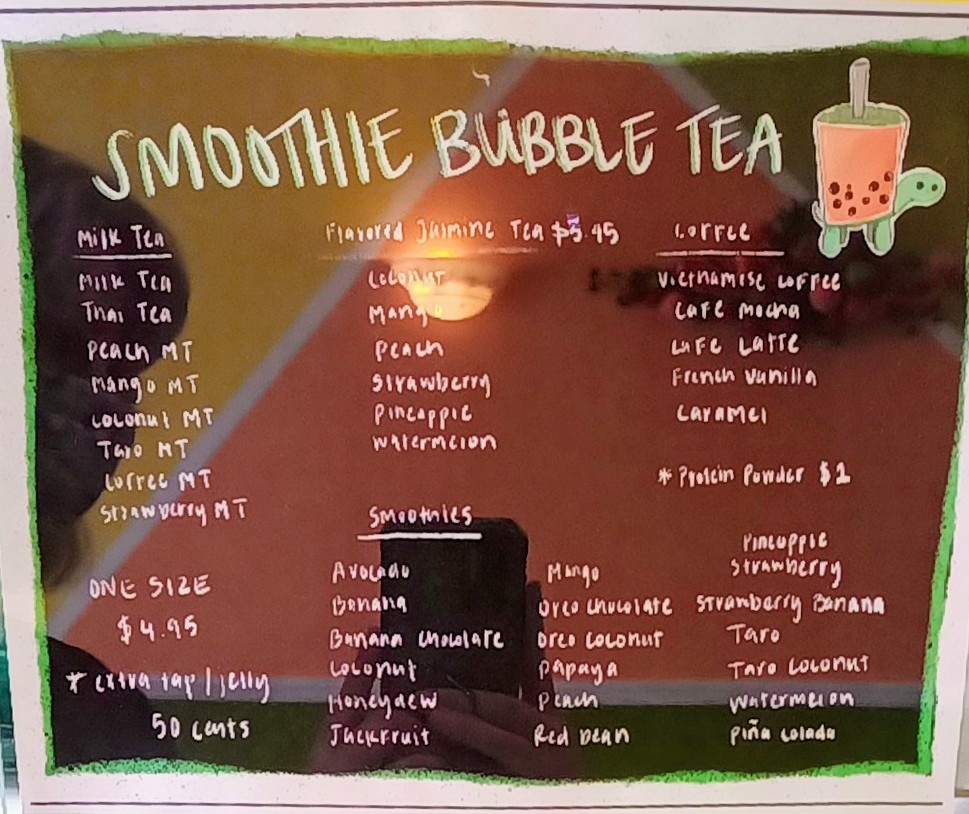 SMOOTHIE BUBBLE TEA
Milk Tea
Milk Tea
Thai Tea
Peach MT
Mango MT
Coconut MT
Taro MT
Coffee MT
Strawberry MT
ONE SIZE
$4.95
* extra tap/jelly
50 cents
Flavored Jasmine Tea $5.45
Coconut
Mango
Peach
Strawberry
Pineapple
Watermelon
Coffee
Vietnamese Coffee
Cafe Mocha
Cafe Latte
French Vanilla
Caramel
* Protein Powder $1
Smoothies
Avocado
Banana
Banana Chocolate
Coconut
Honeydew
Jackfruit
Mango
Oreo Chocolate
Oreo Coconut
Papaya
Peach
Red Bean
Pineapple
Strawberry
Strawberry Banana
Taro
Taro Coconut
Watermelon
Piña Colada